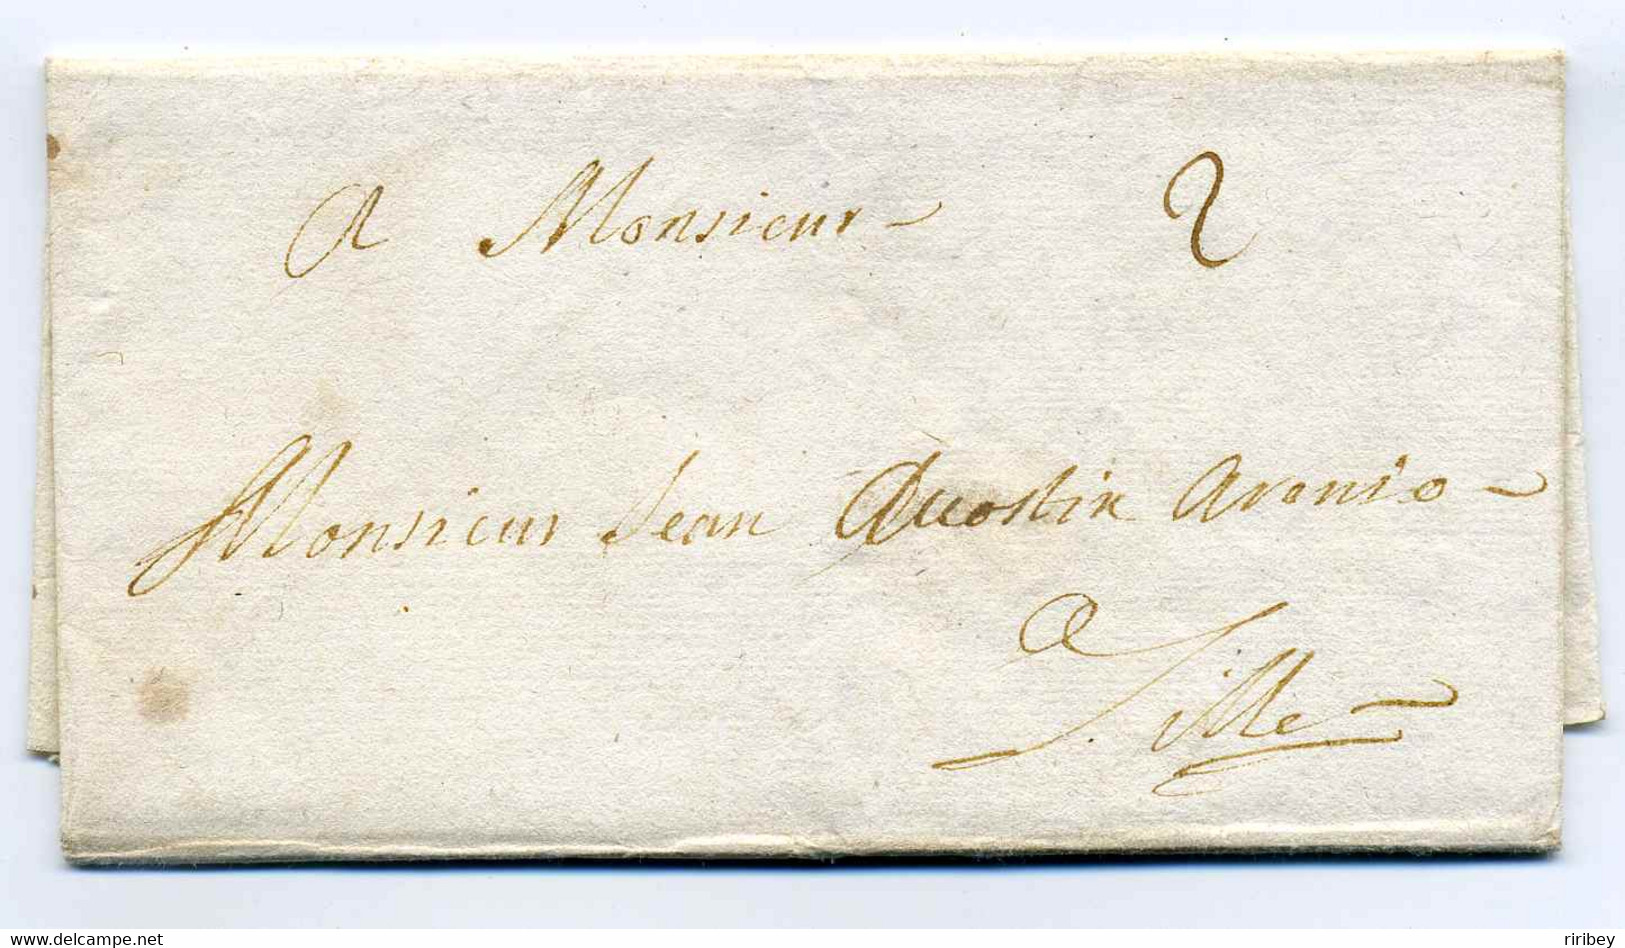 A Monsieur 2
Monsieur Jean
A
Lille
www.delcampe.net
riribey